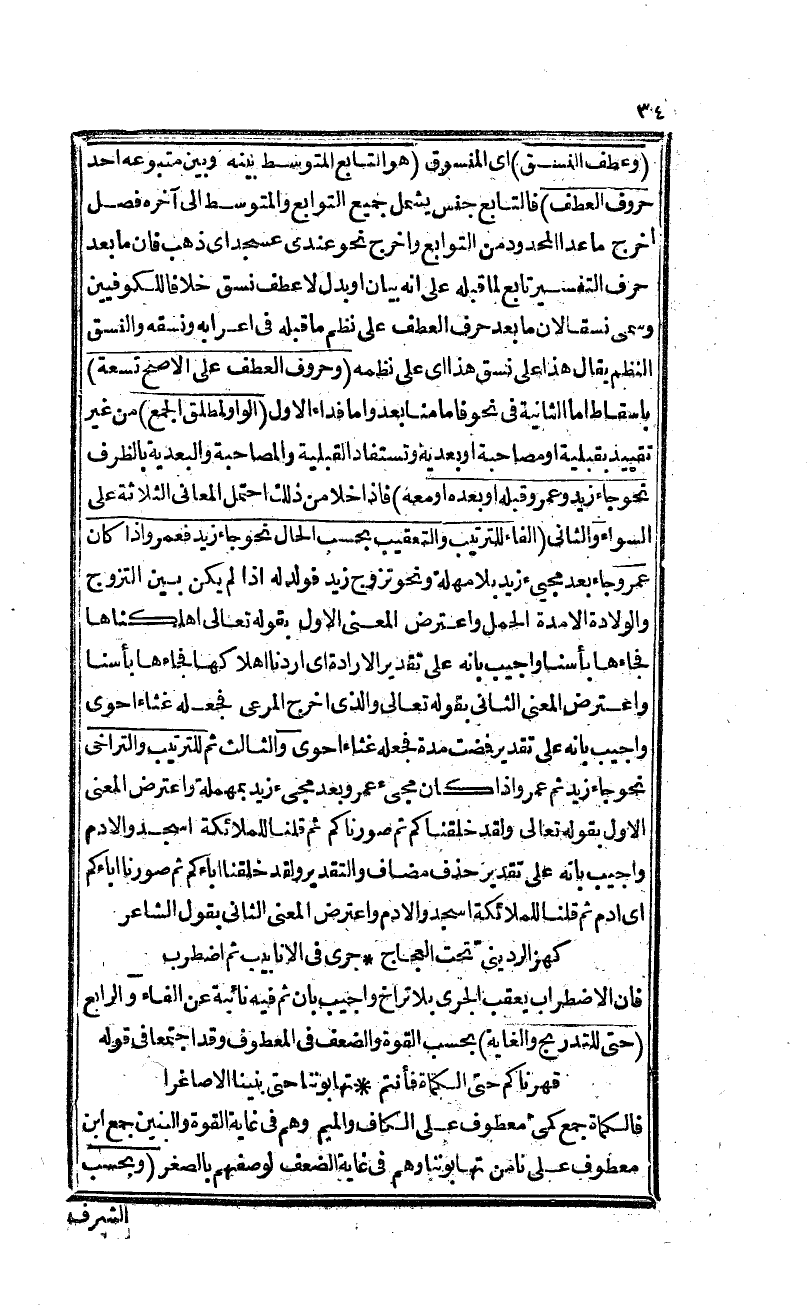 ٣٠٤
(وعطف النسق) اى المنسوق (هو التابع المتوسط بينه وبين متبوعه احد
حروف العطف) فالتابع جنس يشمل جميع التوابع والمتوسط الى آخره فصل
أخرج ماعدا المحدود من التوابع واخرج نحو عندى عسجد اى ذهب فان مابعد
حرف التفسير تابع لما قبله على انه بيان او بدل لا عطف نسق خلافا للكوفيين
وسمى نسقا لان مابعد حرف العطف على نظم ما قبله فى اعرابه ونسقه والنسق
النظم يقال هذا على نسق هذا اى على نظمه (وحروف العطف على الاصح تسعة)
باسقاط اما الثانية فى نحو فاما منا بعد واما فداء الاول (الواو لمطلق الجمع) من غير
تقييد بقبلية او مصاحبة او بعدية وتستفاد القبلية والمصاحبة والبعدية بالظرف
نحو جاء زيد وعمرو قبله او بعده او معه) فاذا خلا من ذلك احتمل المعانى الثلاثة على
السواء والثانى (الفاء للترتيب والتعقيب بحسب الحال نحو جاء زيد فعمرو اذا كان
عمرو جاء بعد مجيىء زيد بلا مهلة ونحو تزوج زيد فولد له اذا لم يكن بين التزوج
والولادة الا مدة الحمل واعترض المعنى الاول بقوله تعالى اهلكناها
فجاءها بأسنا واجيب بانه على تقدير الارادة اى اردنا اهلاكها فجاءها بأسنا
واعترض المعنى الثانى بقوله تعالى والذى اخرج المرعى فجعله غثاء احوى
واجيب بانه على تقدير فمضت مدة فجعله غثاء احوى والثالث ثم للترتيب والتراخى
نحو جاء زيد ثم عمرو اذا كان مجىء عمرو بعد مجىء زيد بمهملة واعترض المعنى
الاول بقوله تعالى ولقد خلقناكم ثم صورناكم ثم قلنا للملائكة اسجدوا لادم
واجيب بانه على تقدير حذف مضاف والتقدير ولقد خلقنا اباءكم ثم صورنا اباءكم
اى ادم ثم قلنا للملائكة اسجدوا لادم واعترض المعنى الثانى بقول الشاعر
كهز الردينى تحت العجاج * جرى فى الانابيب ثم اضطرب
فان الاضطراب يعقب الجرى بلا تراخ واجيب بان ثم فيه نائبة عن الفاء و الرابع
(حتى للتدريج والغاية) بحسب القوة والضعف فى المعطوف وقد اجتمعا فى قوله
قهرناكم حتى الكماة فأنتم * تهابوننا حتى بنينا الاصاغرا
فالكماة جمع كمى معطوف على الكاف والميم وهم فى غاية القوة والبنين جمع ابن
معطوف على نا من تهابوننا وهم فى غاية الضعف لوصفهم بالصغر (وبحسب
الشرف